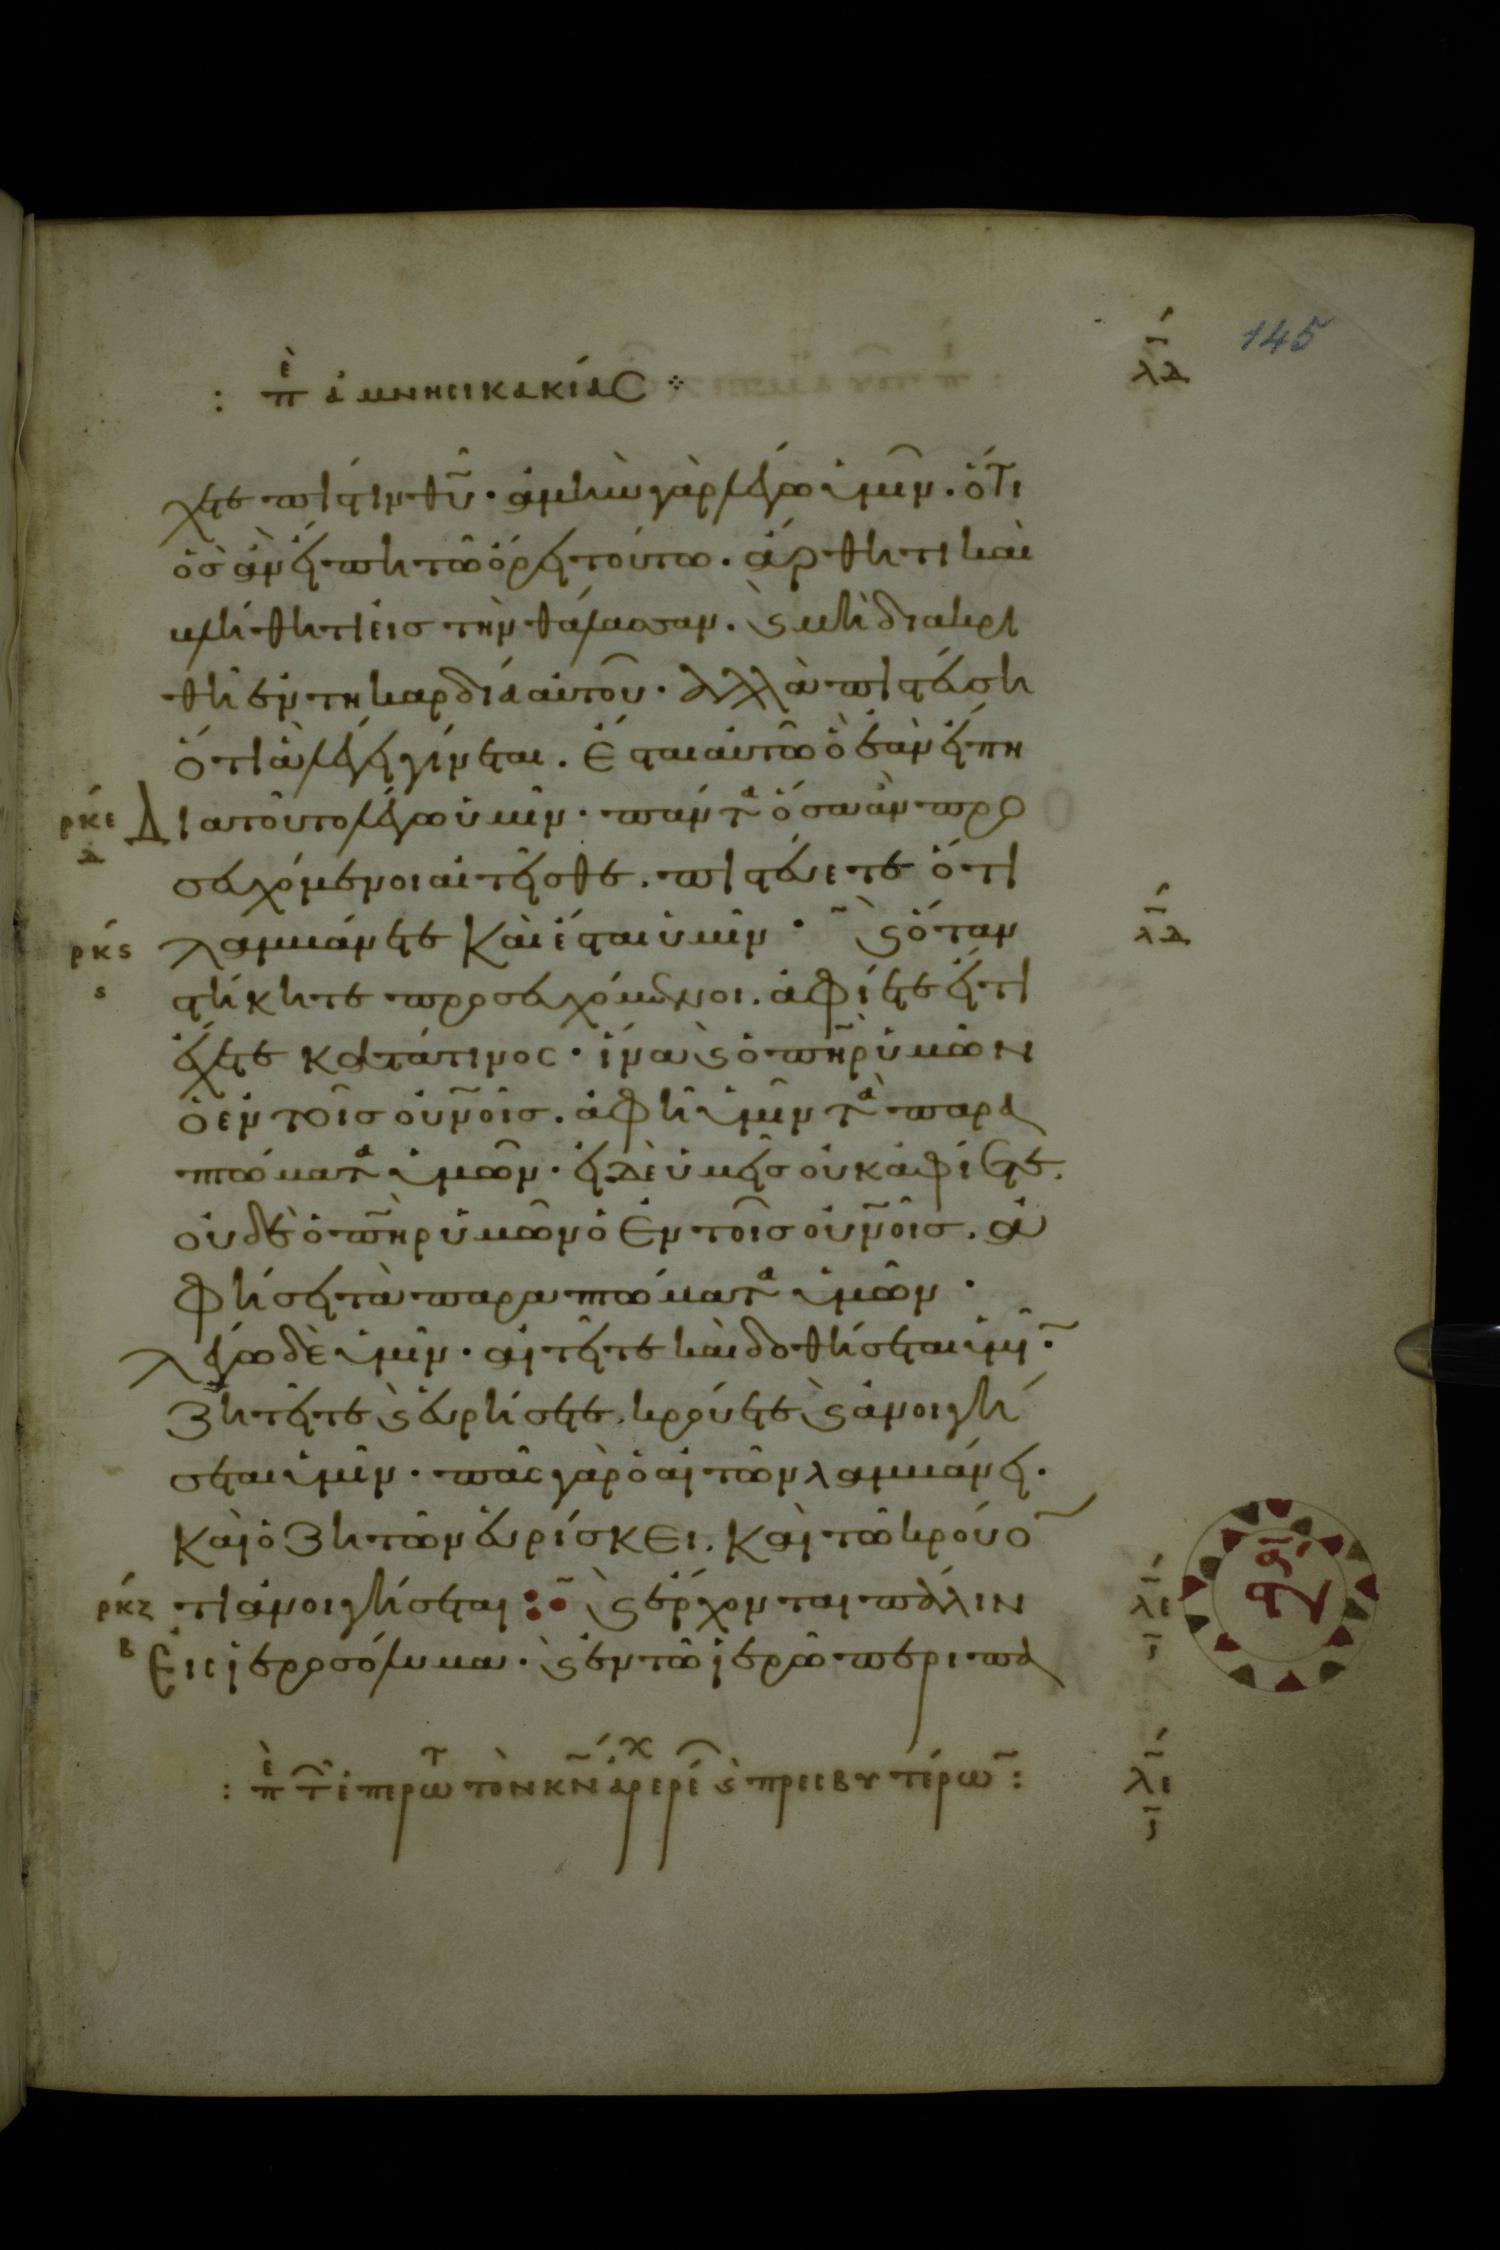 λδ 145
: π̀ε ἀμνησικακίας ⁘
χετε πίστιν θῦ· ἀμὴν γὰρ λέγω ὑμῖν· ὅτι
ὃσ ἂν εἴπη τῶ ὄρει τούτω· ἄρθητι καὶ
βλήθητι εἰσ τὴν θάλασσαν· ϗ μὴ διακρι
θῆ ἐν τη καρδία αὐτοῦ· ἀλλὰ πιστεύση
ὅτι ἃ λέγει γίνεται· ἔσται αὐτῶ ὃ ἐὰν εἴπη
ρκε
δ
Διατοῦτο λέγω ὑμῖν· πάντα ὅσα ἂν προ
σευχόμενοι αἰτεῖσθε· πιστεύετε ὅτι
ρκς
ς
λαμβάνετε καὶ ἔσται ὑμῖν· ϗ ὅταν
λδ
στήκητε προσευχόμενοι· ἀφίετε εἴ τι
ἔχετε κατά τινος· ἵνα ϗ ὁ πῆρ ὑμῶν
ὁ ἐν τοῖσ οὐνοῖσ· ἀφῆ ὑμῖν τὰ παρα
πτώματα ὑμῶν· εἰ δὲ ὑμεῖσ οὐκ ἀφίετε·
οὐδὲ ὁ πῆρ ὑμῶν ὁ ἐν τοῖσ οὐνοῖσ· ἀ
φήσει τὰ παραπτώματα ὑμῶν·
λέγω δὲ ὑμῖν· αἰτεῖτε καὶ δοθήσεται ὑμῖ·
ζητεῖτε ϗ εὑρήσετε· κρούετε ϗ ἀνοιγή
σεται ὑμῖν· πᾶς γὰρ ὁ αἰτῶν λαμβάνει·
καὶ ὁ ζητῶν εὑρίσκει· καὶ τῶ κρούο
ρκζ
β
τι ἀνοιγήσεται : ϗ ἔρχονται πάλιν
λε
ς
εἰς ἱεροσόλυμα· ϗ ἐν τῶ ἱερῶ περιπα
: π̀ε τ ἐπερωτ τὸν κν ἀρχερέ ϗ πρεσβυτέρω :
λε
ς